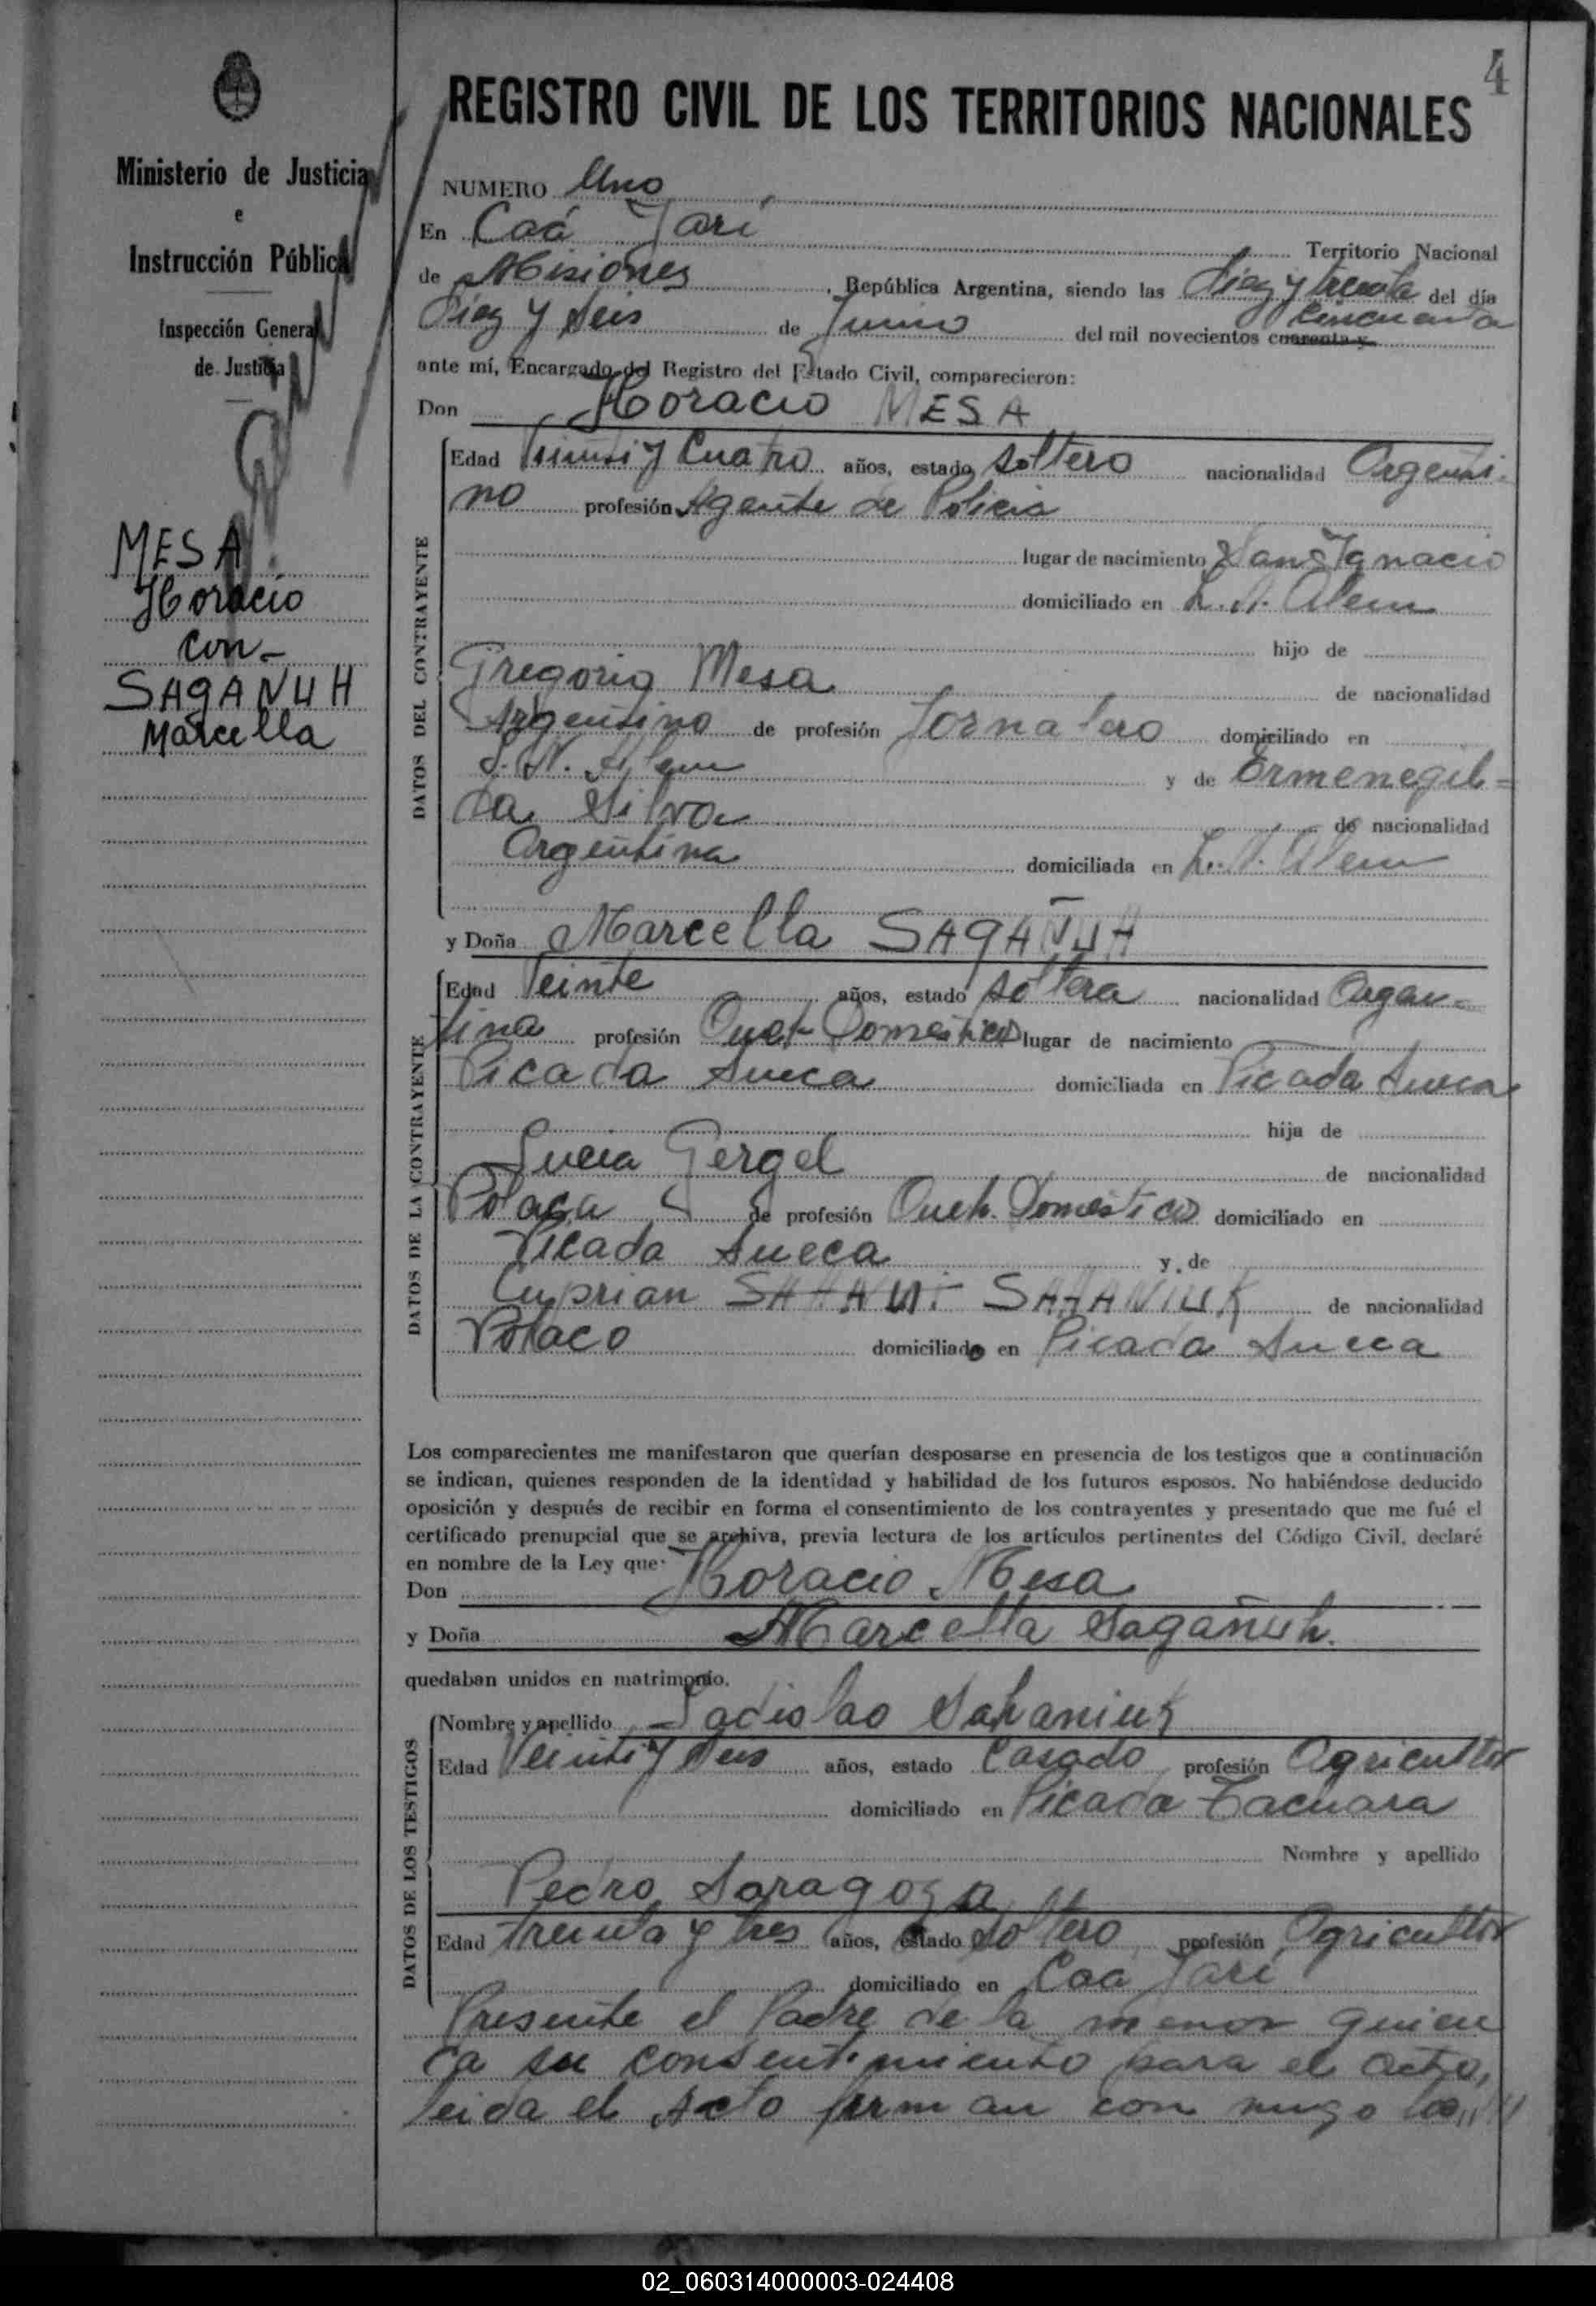 4
REGISTRO CIVIL DE LOS TERRITORIOS NACIONALES
Ministerio de Justicia
e
Instrucción Pública
Inspección General
de Justicia
MESA
Horacio
con-
SAGANUH
Marcella
NUMERO Uno
En Caá Yarí
Territorio Nacional
de Misiones, República Argentina, siendo las diez y treinta del día
Diez y seis de Junio del mil novecientos cuarenta y cincuenta
ante mí, Encargado del Registro del Estado Civil, comparecieron:
Don Horacio MESA
DATOS DEL CONTRAYENTE
Edad Veinti y Cuatro años, estado soltero nacionalidad Argenti-
no profesión Agente de Policia
lugar de nacimiento San Ignacio
domiciliado en L. N. Alem
hijo de
Gregorio Mesa de nacionalidad
Argentino de profesión Jornalero domiciliado en
L. N. Alem y de Ermenegil=
da Silva de nacionalidad
Argentina domiciliada en L. N. Alem
y Doña Marcella SAGAÑUH
DATOS DE LA CONTRAYENTE
Edad Veinte años, estado soltera nacionalidad Argen-
tina profesión Queh. Domesticos lugar de nacimiento
Picada Sueca domiciliada en Picada Sueca
hija de
Lucia Gergel de nacionalidad
Polaca de profesión Queh. Domesticos domiciliado en
Picada Sueca y de
Cuprian SAHANIUK de nacionalidad
Polaco domiciliado en Picada Sueca
Los comparecientes me manifestaron que querían desposarse en presencia de los testigos que a continuación
se indican, quienes responden de la identidad y habilidad de los futuros esposos. No habiéndose deducido
oposición y después de recibir en forma el consentimiento de los contrayentes y presentado que me fué el
certificado prenupcial que se archiva, previa lectura de los artículos pertinentes del Código Civil, declaré
en nombre de la Ley que:
Don Horacio Mesa
y Doña Marcella Sagañuh.
quedaban unidos en matrimonio.
DATOS DE LOS TESTIGOS
Nombre y apellido Ladislao Sahaniuk
Edad Veinti y seis años, estado Casado profesión Agricultor
domiciliado en Picada Tacuara
Nombre y apellido
Pedro Saragoza
Edad treinta y tres años, estado soltero profesión Agricultor
domiciliado en Caa Yarí
Presente el Padre de la menor quien
da su consentimiento para el acto,
leida el Acto firman con migo los,,
02_060314000003-024408